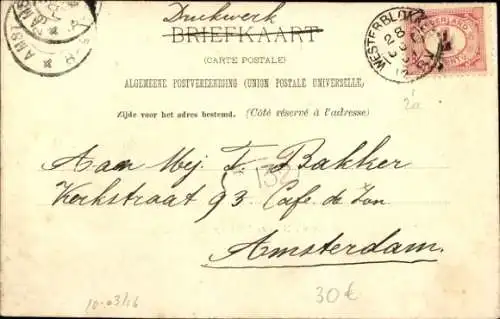 Drukwerk
BRIEFKAART
(CARTE POSTALE)
ALGEMEENE POSTVEREENIGING (UNION POSTALE UNIVERSELLE)
Zijde voor het adres bestemd. (Côté réservé à l'adresse)
WESTERBLOK
NEDERLAND
AMST
2a
Aan Mej. F. Bakker
132
Kerkstraat 93 Cafe de Zon
Amsterdam.
30€